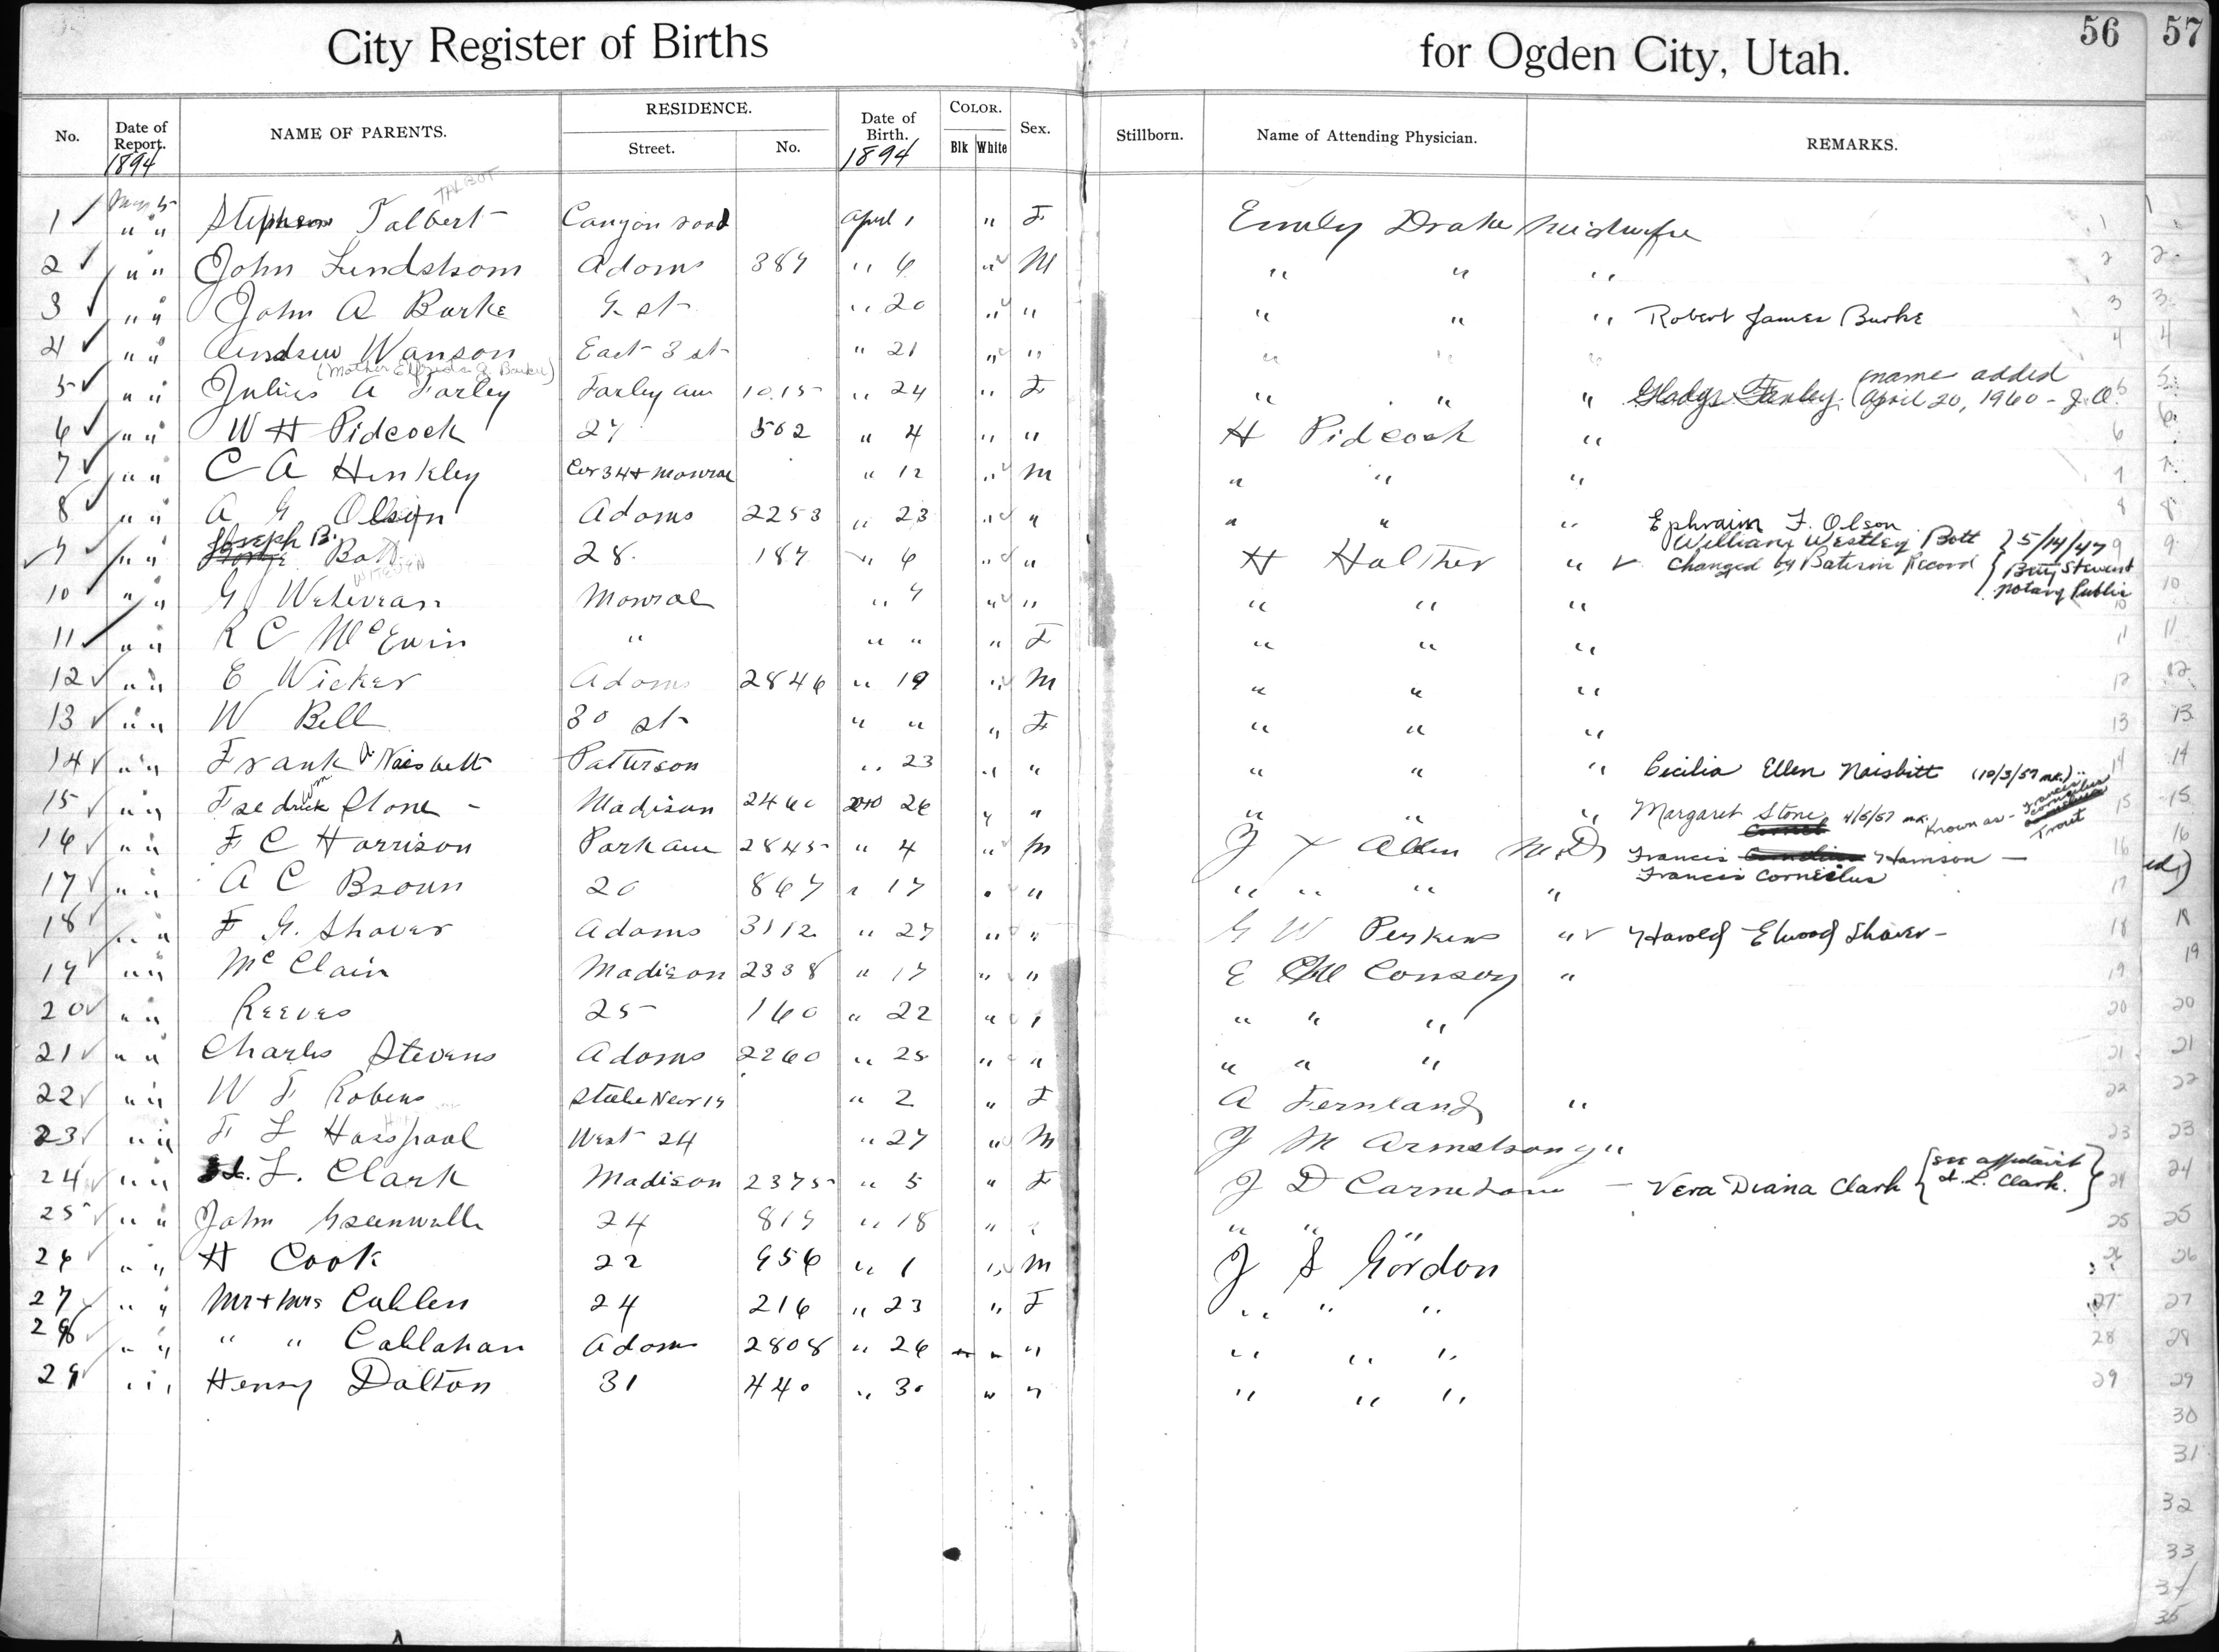 City Register of Births for Ogden City, Utah. 56 57
No. Date of Report. NAME OF PARENTS. RESIDENCE. Street. No. Date of Birth. COLOR. Blk White Sex. Stillborn. Name of Attending Physician. REMARKS.
1894 1894
TALBOT
1 " " Stephen Talbert Canyon road April 1 " F Emily Drake Midwife 1
2 " " John Lundstrom Adams 387 " 6 " M " " " 2 2
3 " " John A Burke G st " 20 " " " " " Robert James Burke 3 3
4 " " Andrew Wanson East 3 st " 21 " " " " " 4 4
(Mother Elfreda J. Barker)
5 " " Julius A Farley Farley ave 1015 " 24 " F " " " Gladys Farley. (name added April 20, 1960 - J.O. 5 5
6 " " W H Pidcock 27 502 " 4 " " H Pidcock " 6 6
7 " " C A Hinkley Cor 34 + Monroe " 12 " M " " " 7 7
8 " " A G Olson Adams 2253 " 23 " " " " " Ephraim F. Olson 8 8
Joseph B. William Westley Bott } 5/14/47
9 " " Bott 28 187 " 6 " " H Halther " Changed by Bateson Record Betty Stewart Notary Public 9 9
10 " " G Monroe " 9 " " " " " 10 10
11 " " R C McEwin " " " " F " " " 11 11
12 " " E Wicker Adams 2846 " 19 " M " " " 12 12
13 " " W Bell 30 st " " " F " " " 13 13
14 " " Frank Naisbett Patterson " 23 " " " " " Cecilia Ellen Naisbitt (10/3/57 mr.) 14 14
15 " " Fredrick Stone - Madison 2460 26 " " " " " Margaret Stone 4/5/57 mr. Known as - Francis Cornelius Trout 15 15
16 " " F C Harrison Park ave 2845 " 4 " M J X Allen M.D. Francis Harrison — 16 16
Francis Cornelius
17 " " A C Broun 20 867 " 17 " " " " " " 17
18 " " F G. Shaver Adams 3112 " 27 " " G W Perkins " Harold Elwood Shaver - 18 18
19 " " McClain Madison 2338 " 17 " " E M Conroy " 19 19
20 " " Reeves 25 160 " 22 " " " " " 20 20
21 " " Charles Stevens Adams 2260 " 25 " " " " " 21 21
22 " " W F Robins Steele Near 19 " 2 " F A Fernland " 22 22
23 " " F L Hosspool West 24 " 27 " M J M Armstrong " 23 23
24 " " L. Clark Madison 2375 " 5 " F J D Carnahan — Vera Diana Clark {see affidavit L. Clark.} 24 24
25 " " John Greenwell 24 819 " 18 " " " " 25 25
26 " " H Cook 22 956 " 1 " M J S Gordon 26 26
27 " " Mr + Mrs Cullen 24 216 " 23 " F " " " 27 27
28 " " " " Callahan Adams 2808 " 26 " " " " " 28 28
29 " " Henry Dalton 31 440 " 30 w " " " " 29 29
30
31
32
33
34
35